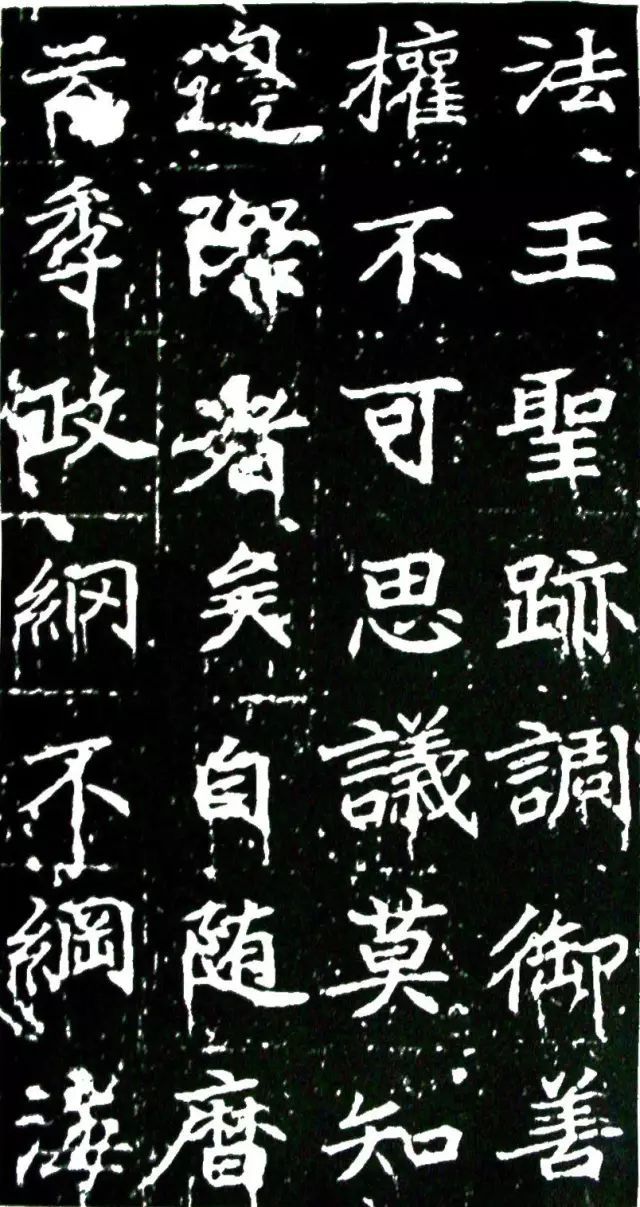 法王聖跡調御善
權不可思議莫知
邊際者矣自随暦
季政網不綱海